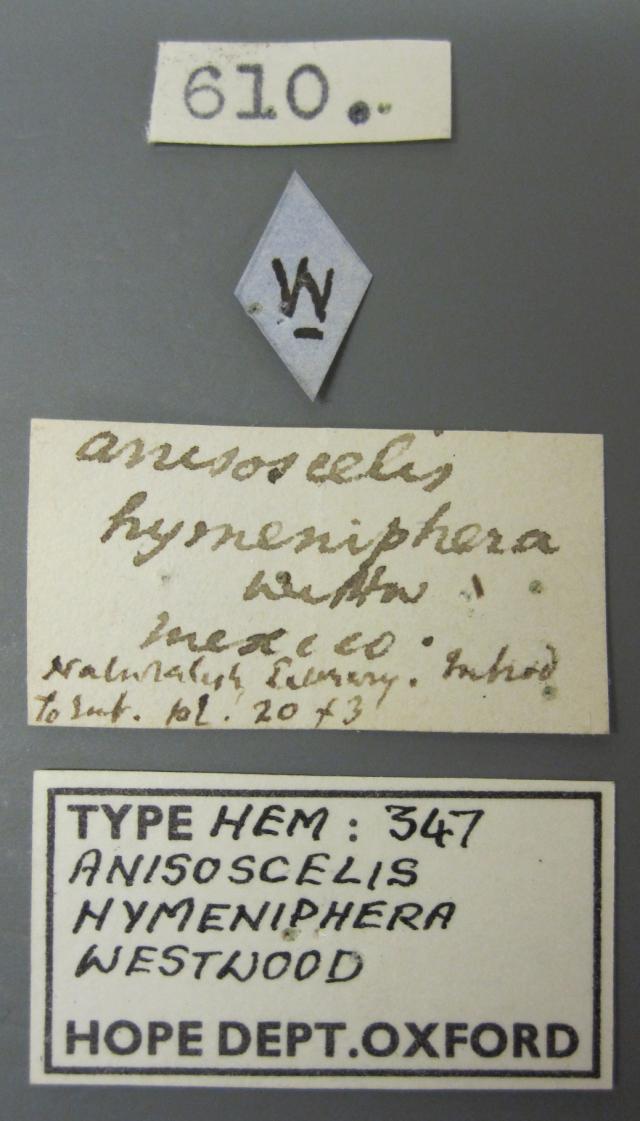 610.
W
anisoscelis
hymeniphera
Westw
mexico.
Naturalists Library. Introd
to Ent. pl. 20 f 3
TYPE HEM : 347
ANISOSCELIS
HYMENIPHERA
WESTWOOD
HOPE DEPT. OXFORD